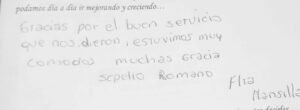 podamos día a día ir mejorando y creciendo...
Gracias por el buen servicio
que nos dieron, estuvimos muy
comodos muchas gracia
sepelio Romano
Flia
Mansilla